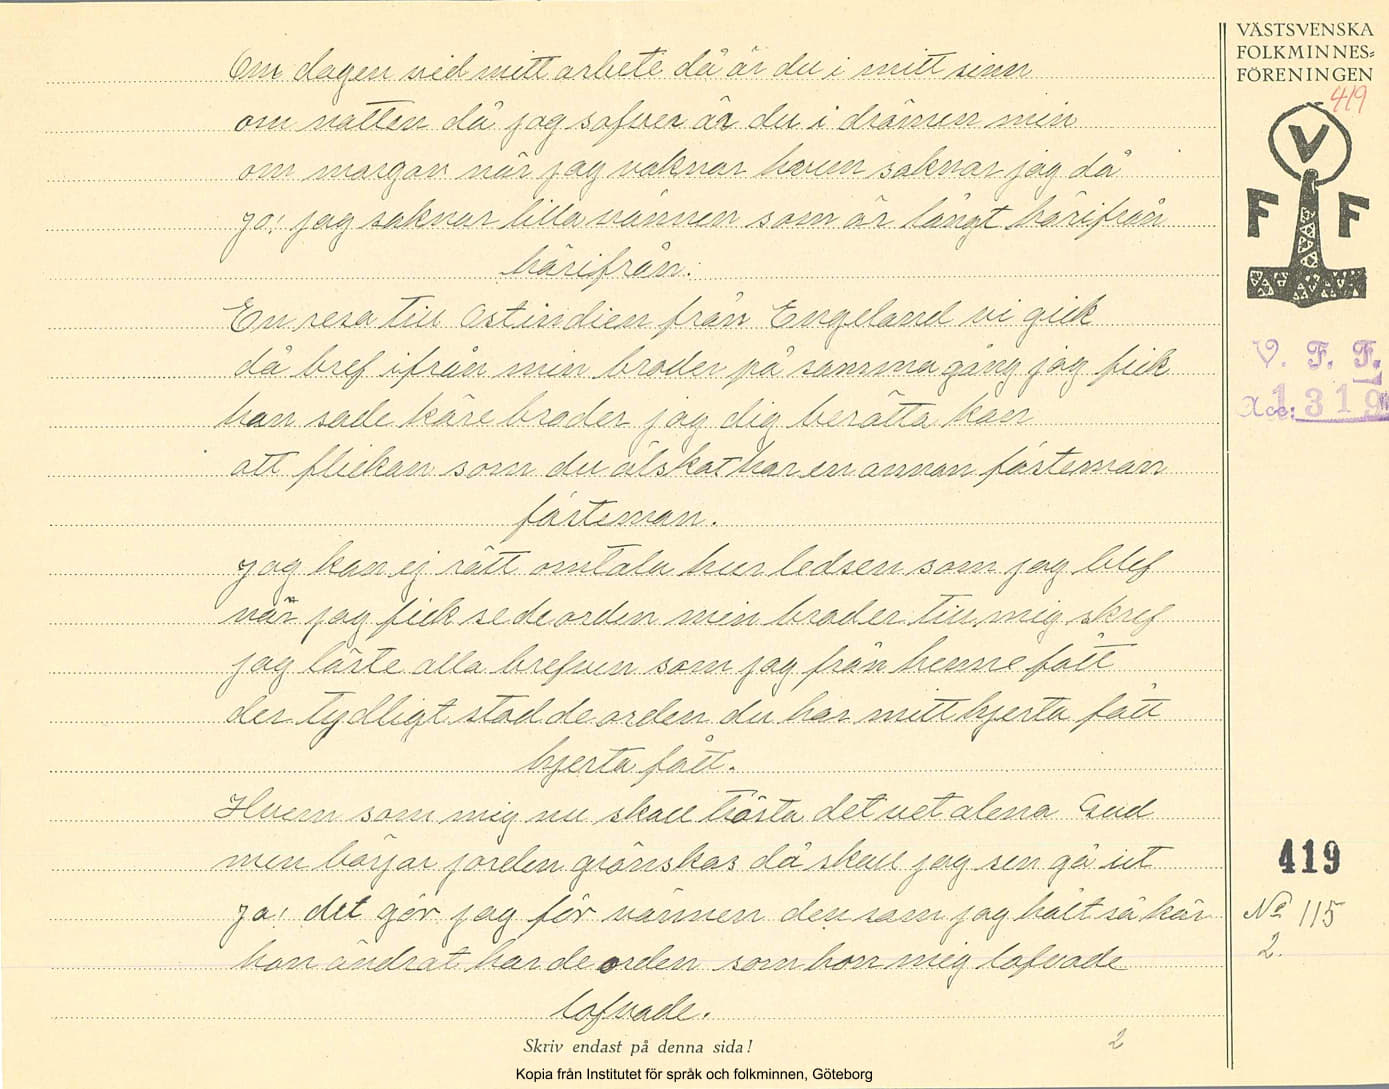 VÄSTSVENSKA
FOLKMINNES=
FÖRENINGEN
419
V
F F
V. F. F.
Acc: 1319
Om dagen vid mitt arbete då är du i mitt sinn
om natten då jag sofver är du i drömen min
om morgon när jag vaknar hvem saknar jag då
ja! jag saknar lilla vännen som är långt härifrån
härifrån.
En resa till Ostindien från Engeland vi gick
då bref ifrån min broder på samma gång jag fick
han sade käre broder jag dig berätta kan
att flickan som du älskat har en annan fästeman
fästeman.
Jag kan ej rätt omtala hur ledsen som jag blef
när jag fick se de orden min broder till mig skref
jag läste alla brefven som jag från henne fått
der tydligt stod de orden du har mitt hjerta fått
hjerta fått.
Hvem som mig nu skall trösta det vet alena Gud
men börjar jorden grönskas då skall jag sen gå ut
ja! det gör jag för vännen den som jag hålt så kär
hon ändrat har de orden som hon mig lofvade
lofvade.
419
No 115
2.
Skriv endast på denna sida!
2
Kopia från Institutet för språk och folkminnen, Göteborg